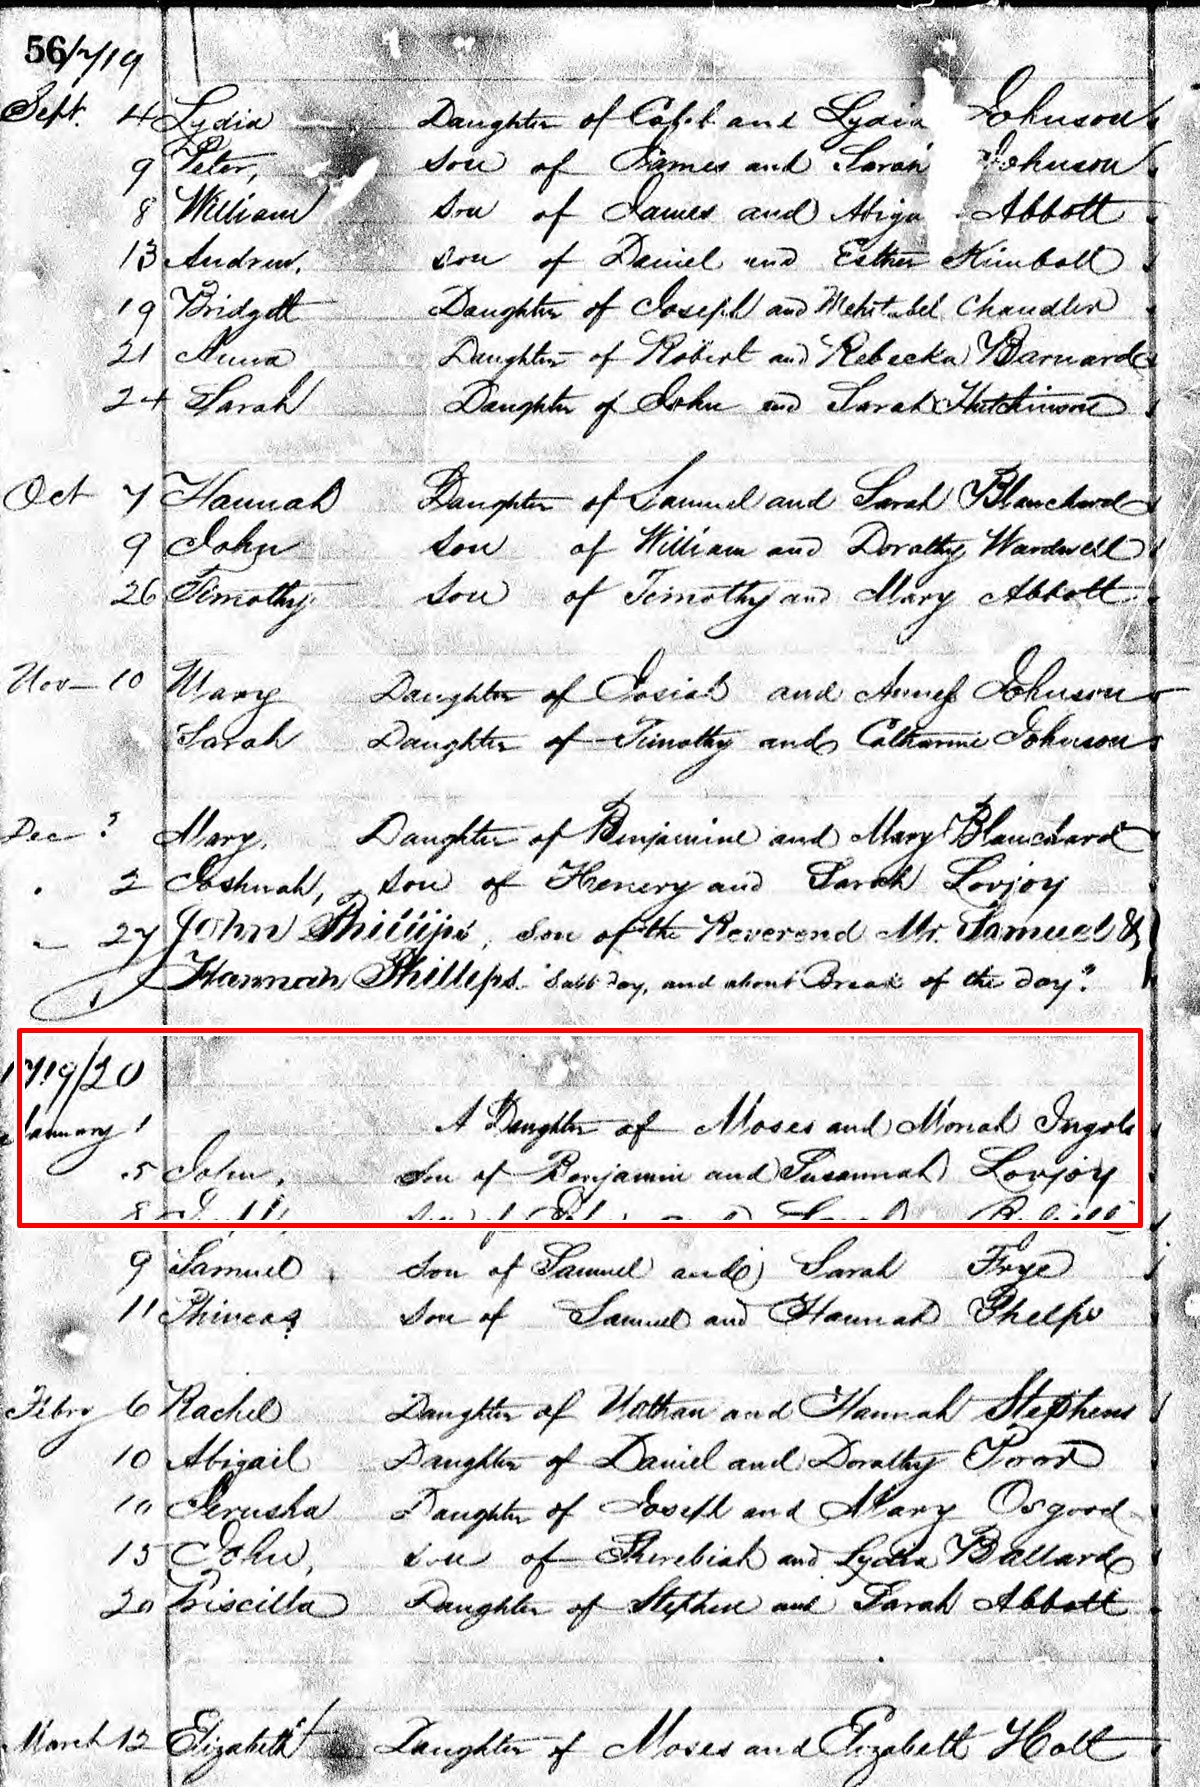 56
1719
Sept. 4 Lydia Daughter of and Lydia Johnson
9 Peter, son of James and Sarah Johnson
8 William son of James and Abiga Abbott
13 Andrew. son of Daniel and Esther Kimball
19 Bridgett Daughter of Joseph and Mehitabel Chandler
21 Anna Daughter of Robert and Rebecka Barnard
24 Sarah Daughter of John and Sarah Hutchinson
Oct 7 Hannah Daughter of Samuel and Sarah Blanchard
9 John son of William and Dorathy Wardwell
26 Timothy son of Timothy and Mary Abbott
Nov 10 Mary Daughter of Josiah and Johnson
Sarah Daughter of Timothy and Catharine Johnson
Dec ? Mary. Daughter of Benjamine and Mary Blanchard
2 Joshuah, son of Henery and Sarah Lovjoy
27 John Phillips, son of the Reverend Mr. Samuel &
Hannah Phillips. Sabb day, and about Break of the day.
1719/20
January 1 A Daughter of Moses and Ingols
5 John, son of Benjamin and Susannah Lovjoy
8 son of and Sarah
9 Samuel son of Samuel and Sarah Frye
11 Phineas son of Samuel and Hannah Phelps
Febry 6 Rachel Daughter of Nathan and Hannah Stephens
10 Abigail Daughter of Daniel and Dorathy Poor
10 Jerusha Daughter of Joseph and Mary Osgood
15 John, son of Sherebiah and Lydia Ballard
20 Priscilla Daughter of Stephen and Sarah Abbott
March 12 Elizabeth Daughter of Moses and Elizabeth Holt